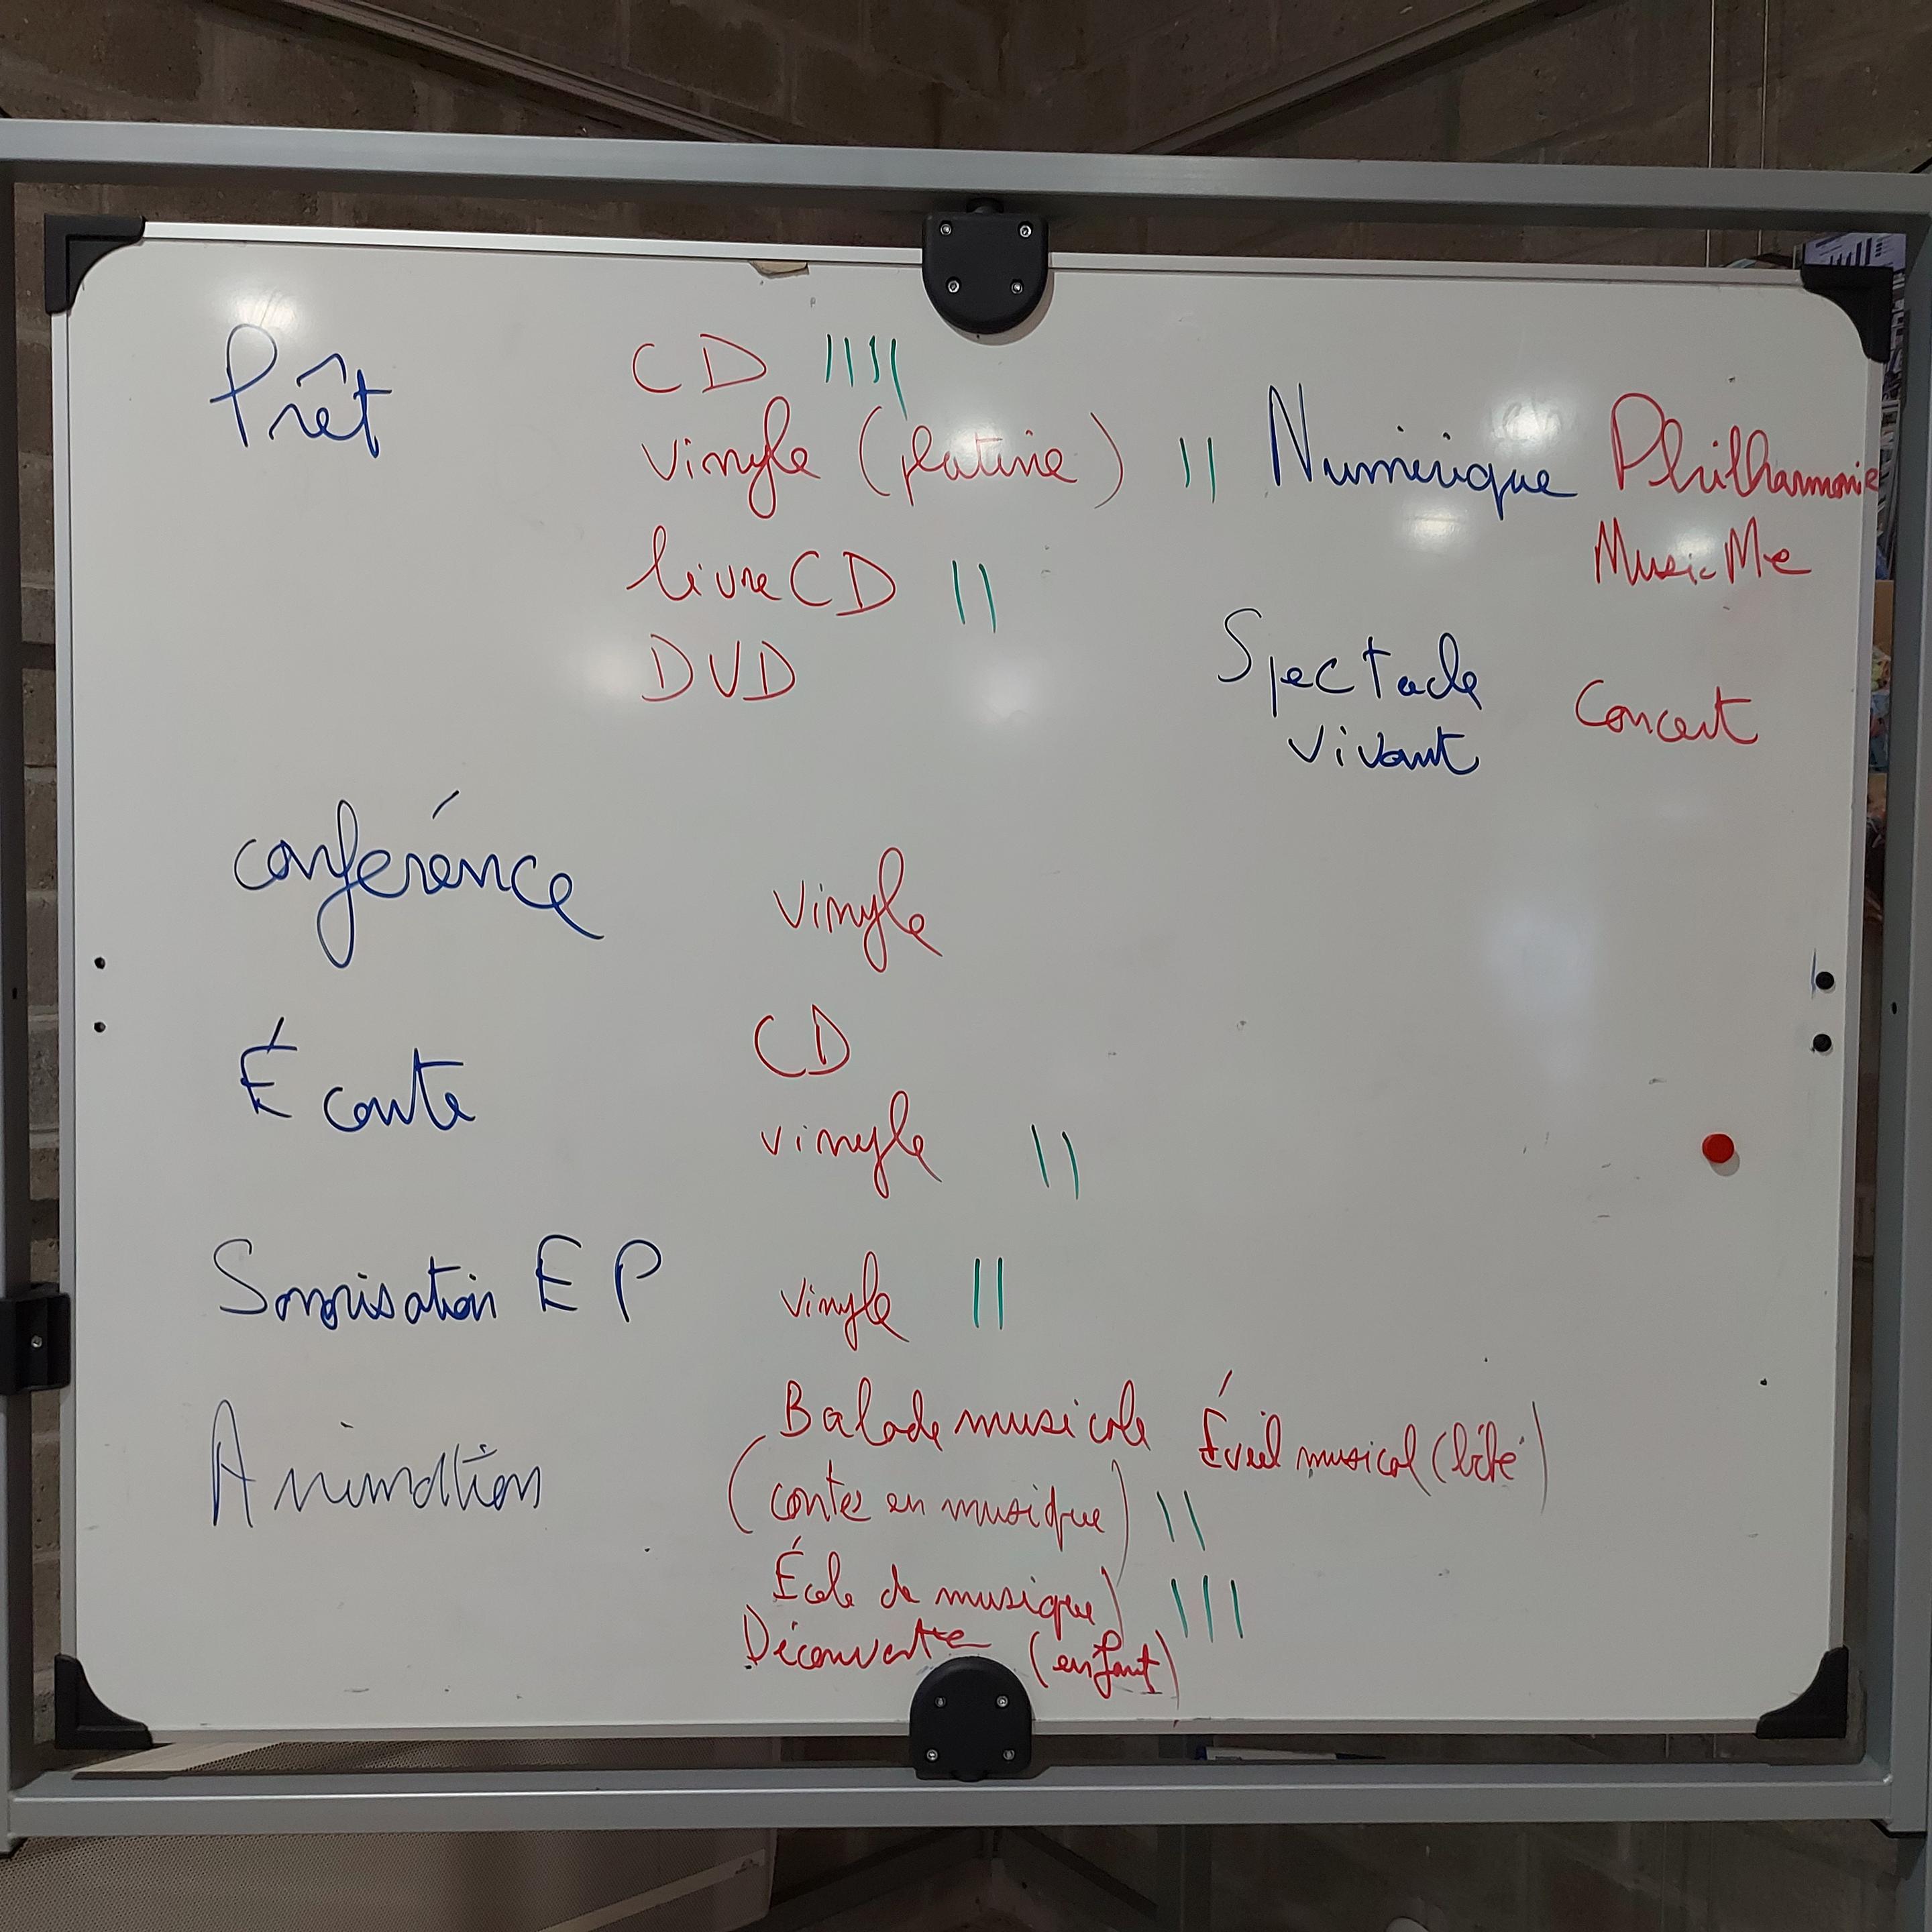 Prêt
CD ||||
vinyle (platine) ||
livre CD ||
DVD
Numérique Philharmonie
MusicMe
Spectacle
vivant
Concert
conférence vinyle
Écoute CD
vinyle ||
Sonorisation EP vinyle ||
Animation
Balade musicale Éveil musical (bébé)
(contes en musique) ||
École de musique) |||
Découverte (enfant)